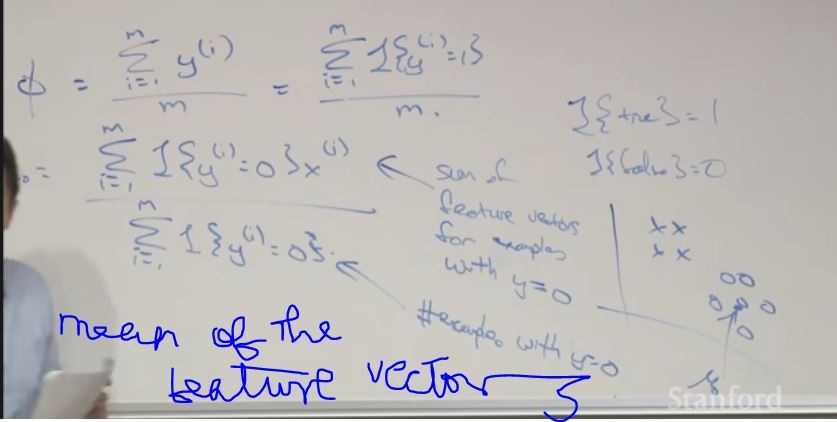 ϕ = Σ_{i=1}^{m} y^{(i)} / m = Σ_{i=1}^{m} 1{y^{(i)}=1} / m.
1{true}=1
1{false}=0
₀ = Σ_{i=1}^{m} 1{y^{(i)}=0}x^{(i)} / Σ_{i=1}^{m} 1{y^{(i)}=0}
sum of
feature vectors
for examples
with y=0
#examples with y=0
mean of the
feature vector
Stanford